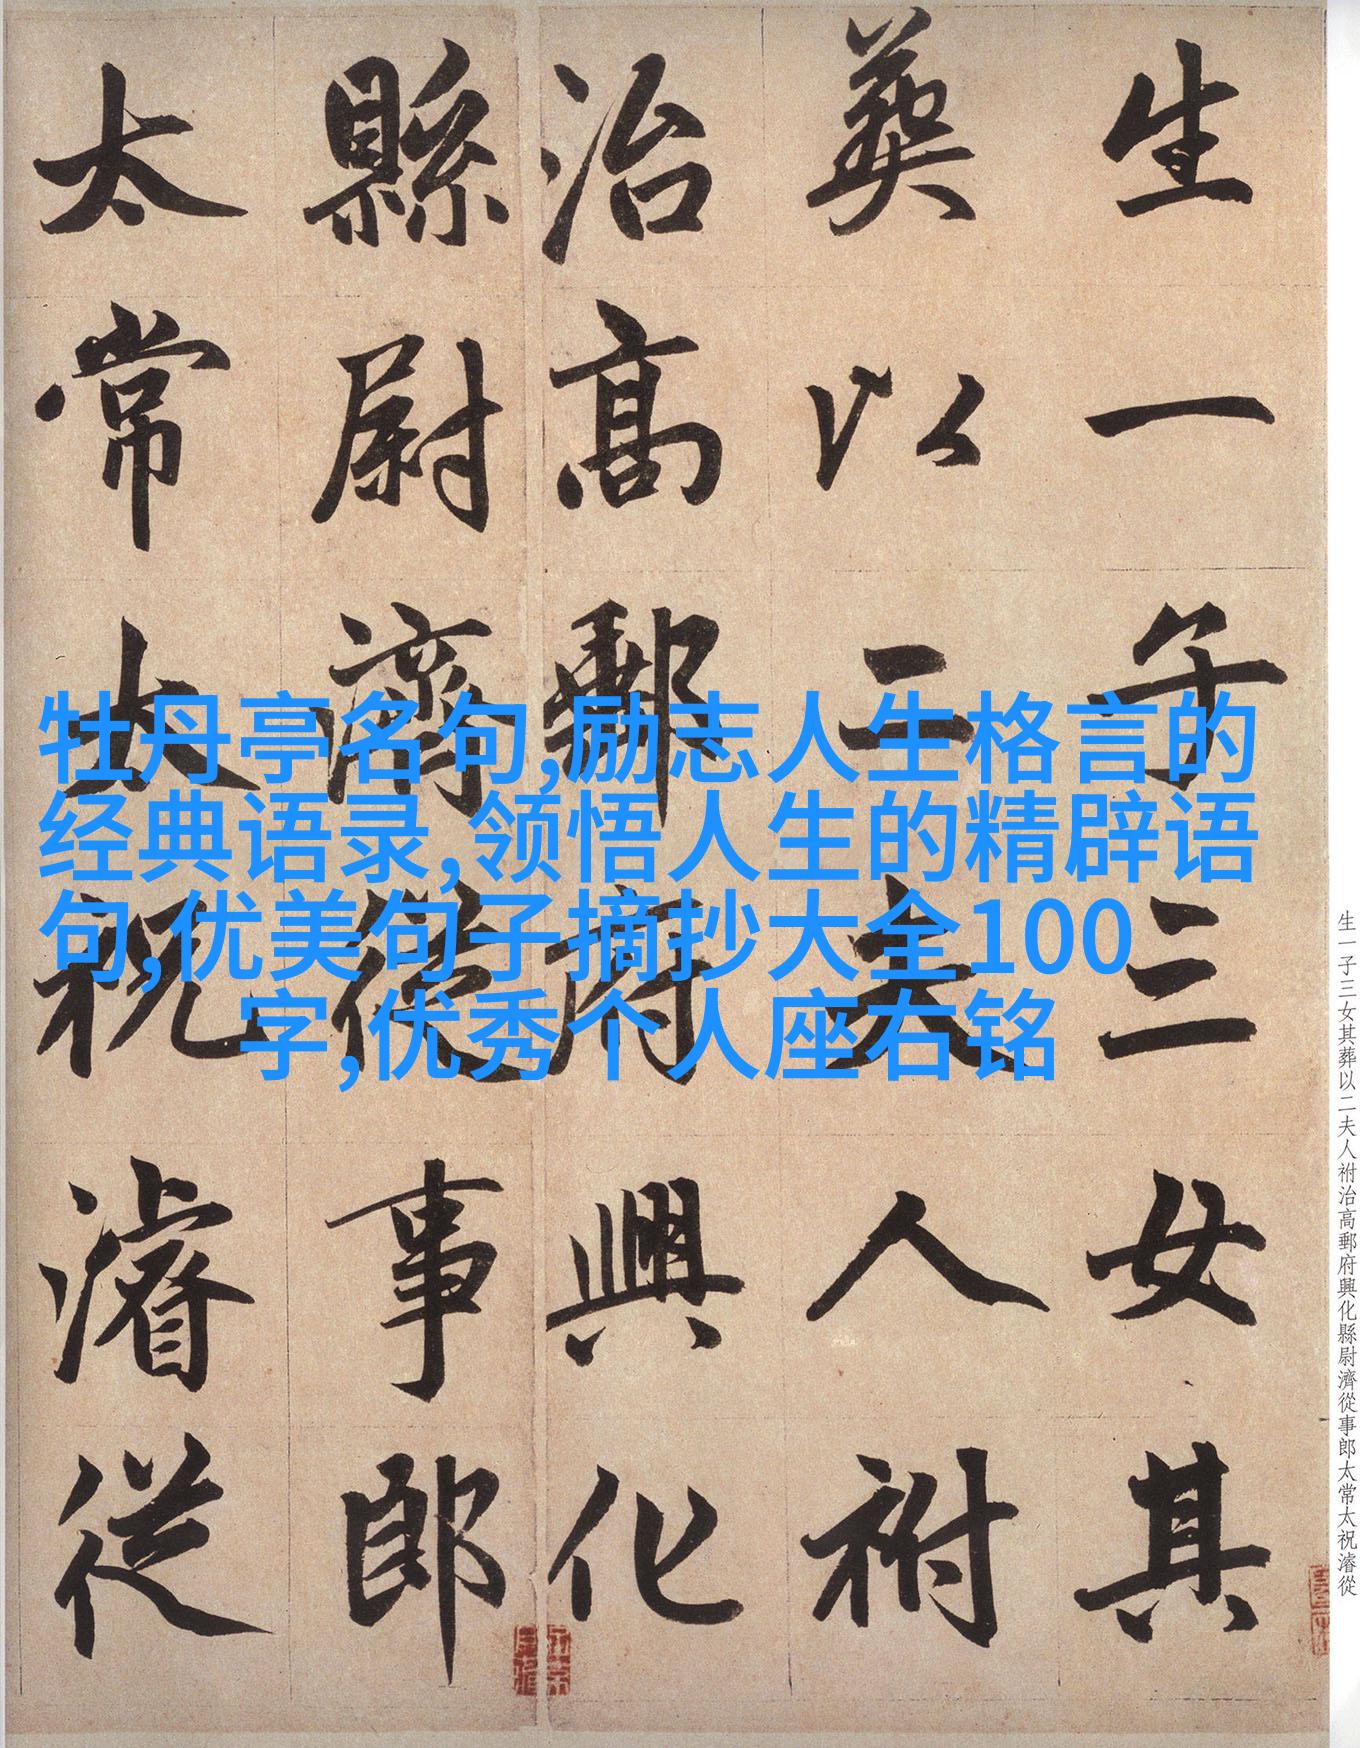 生一子三女其
葬以二夫人祔
治高郵府興化
縣尉濟從事郎
太常太祝濬從
牡丹亭名句,励志人生格言的
经典语录,领悟人生的精辟语
句,优美句子摘抄大全100
字,优秀个人座右铭
生一子三女其葬以二夫人祔治高郵府興化縣尉濟從事郎太常太祝濬從